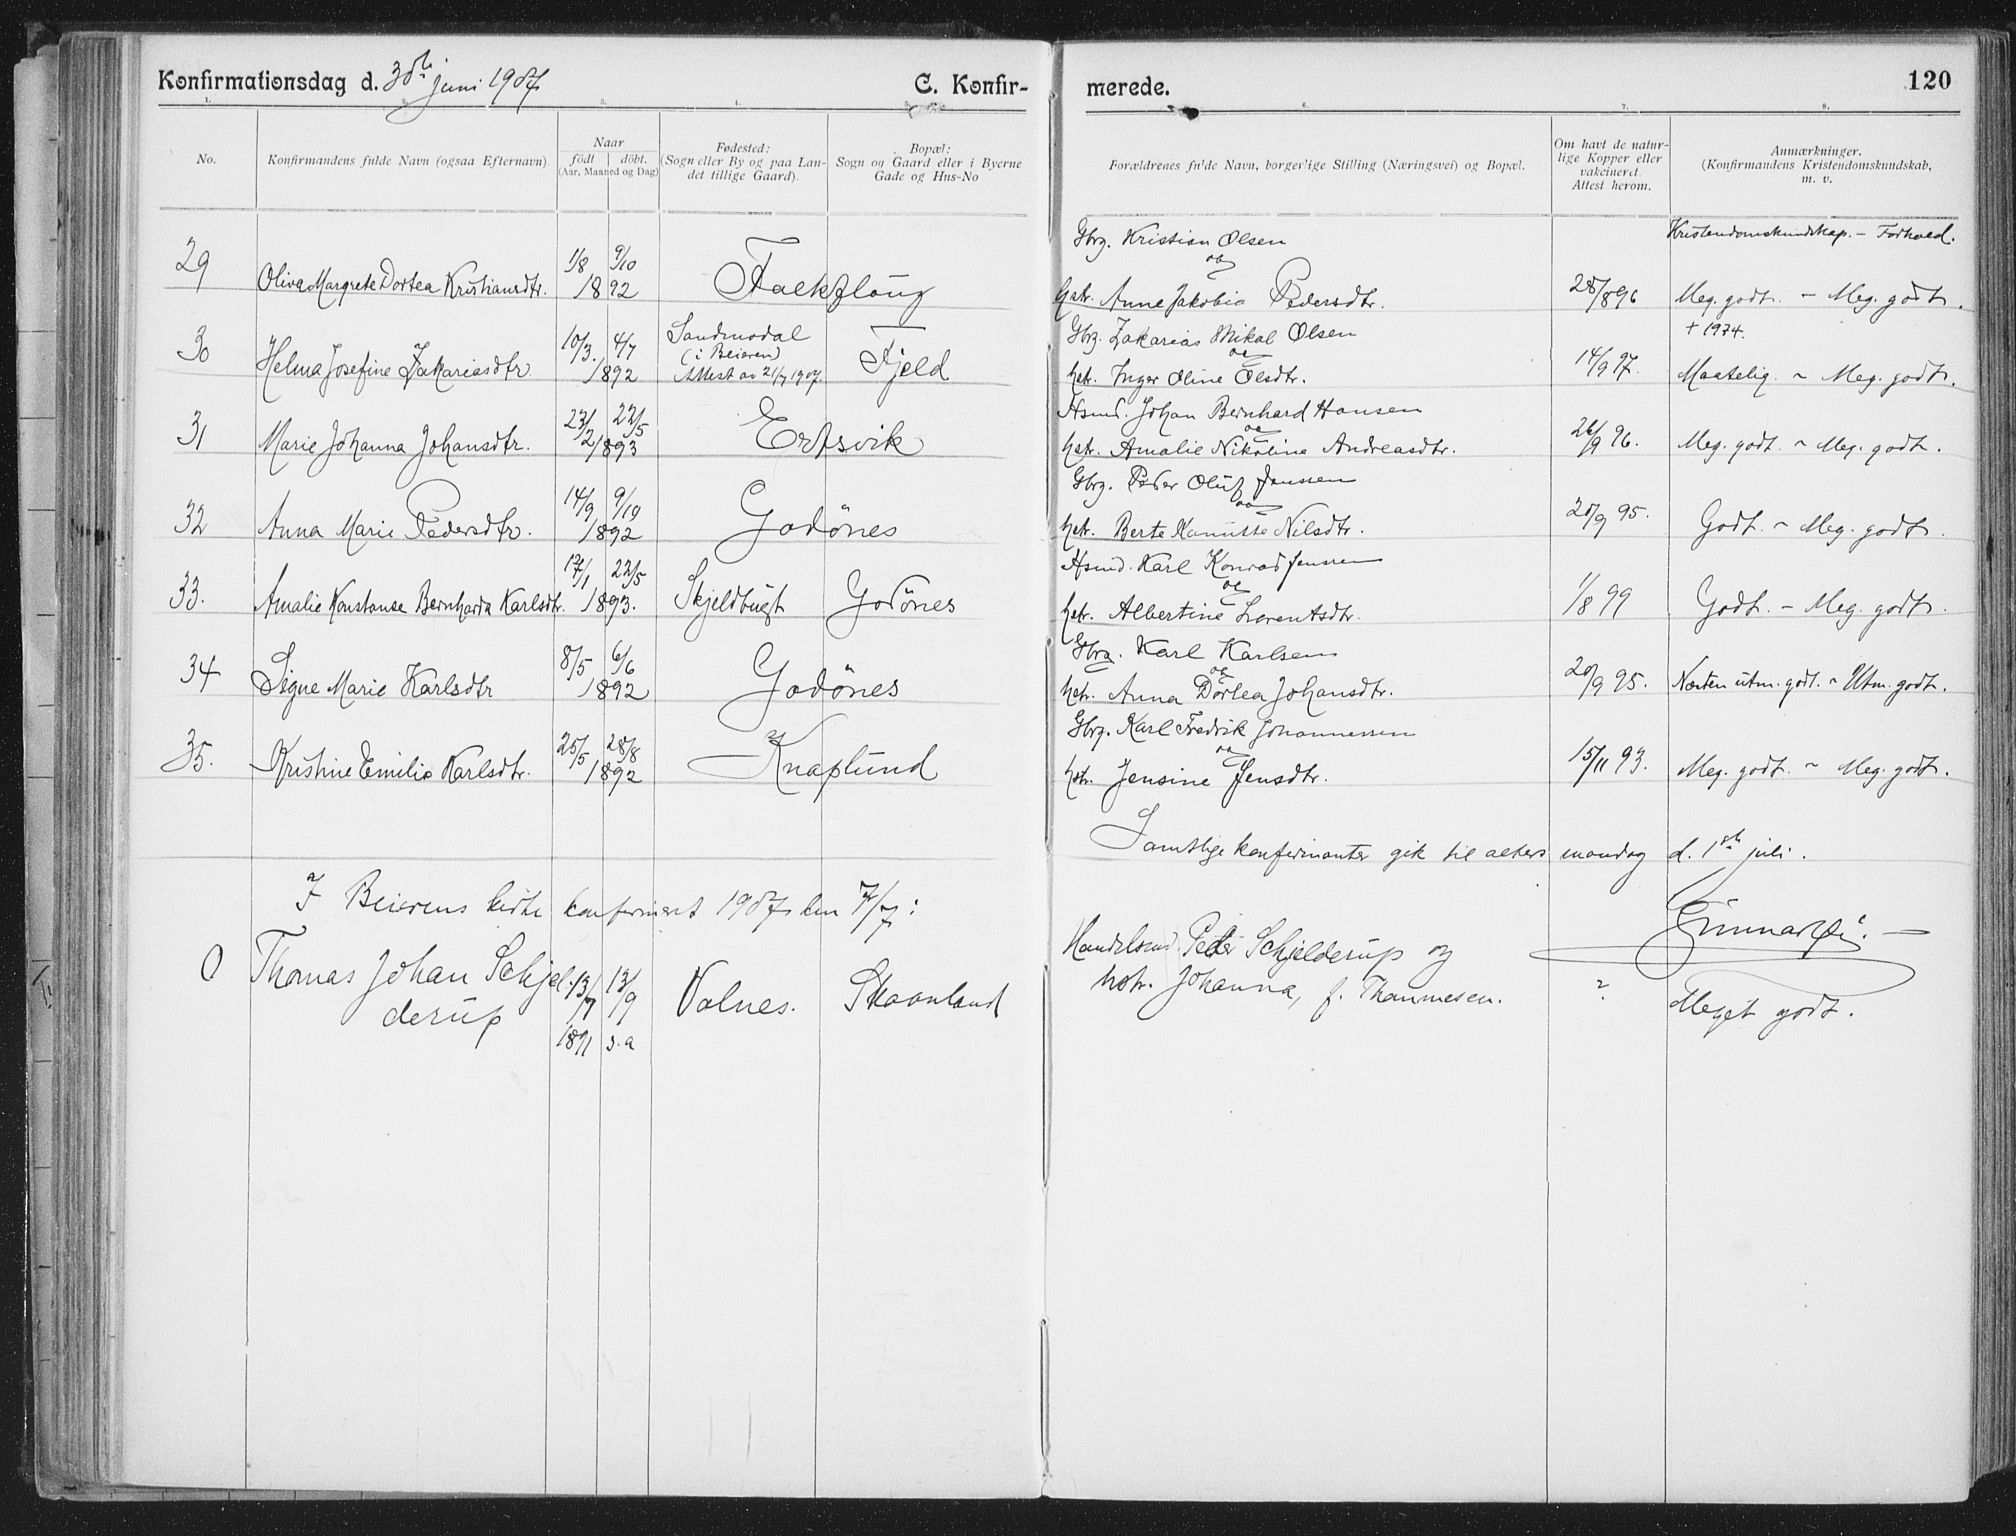 Konfirmationsdag d. 30te juni 1907
C. Konfir-
No.
Konfirmandens fulde Navn (ogsaa Efternavn).
Naar
født | döbt.
(Aar, Maaned og Dag)
Fødested:
(Sogn eller By og paa Lan-
det tillige Gaard).
Bopæl:
Sogn og Gaard eller i Byerne
Gade og Hus-No
29 Oliva Margrete Dortea Kristiansdtr. 1/8 9/10 1892
30 Helma Josefine Zakariasdtr. 10/3. 4/7 1892 Sandmodal (i Beieren) Attest av 21/7 1907. Fjeld
31 Marie Johanna Johansdtr. 22/5 1893 Ertsvik
32 Anna Marie Pedersdtr. 14/9 9/10 1892 Godönes
33. Amalie Konstanse Bernharda Karlsdtr. 17/1 22/5 1893. Skjeldbugt Godönes
34 Signe Marie Karlsdtr 8/5 6/6 1892 Godönes
35. Kristine Emilie Karlsdtr. 25/5 28/8 1892 Knaplund
I Beierens kirke konfirmert 1907 den 7/7:
0 Thomas Johan Schjel-
derup 13/7 1891 13/9 s.a Valnes. Skaanland
merede.
120
Forældrenes fulde Navn, borgerlige Stilling (Næringsvei) og Bopæl.
Om havt de natur-
lige Kopper eller
vakcineret.
Attest herom.
Anmærkninger.
(Konfirmandens Kristendomskundskab,
m. v.
Kristendomskundskap. – Forhold.
Gbrg. Kristian Olsen
og
hstr. Anne Jakobia Pedersdtr. 28/8 96 Meg. godt. – Meg. godt.
Gbrg. Zakarias Mikal Olsen + 1974.
og
hstr. Inger Oline Olsdtr. 14/9 97. Maatelig. ~ Meg. godt.
Hsmd. Johan Bernhard Hansen
og
hstr. Amalie Nikoline Andreasdtr. 26/9 96. Meg. godt. ~ Meg. godt.
Gbrg. Peder Oluf Jenssen
og
hstr. Berte Nilsdtr. 20/9 95. Godt. ~ Meg. godt.
Hsmd. Karl Konrad Jenssen
og
hstr. Albertine Lorentsdtr. 1/8 99 Godt. – Meg. godt.
Gbrg. Karl Karlsen
og
hstr. Anna Dortea Johansdtr. 20/9 95. Næsten utm. godt. ~ Utm. godt.
Gbrg. Karl Fredrik Johannessen
og
hstr. Jensine Jensdtr. 15/11 93. Meg. godt. ~ Meg. godt.
Samtlige konfirmanter gik til alters mandag d. 1ste juli.
Handelsmd. Peder Schjelderup og
hstr. Johanna, f. Thommesen. ? Meget godt.